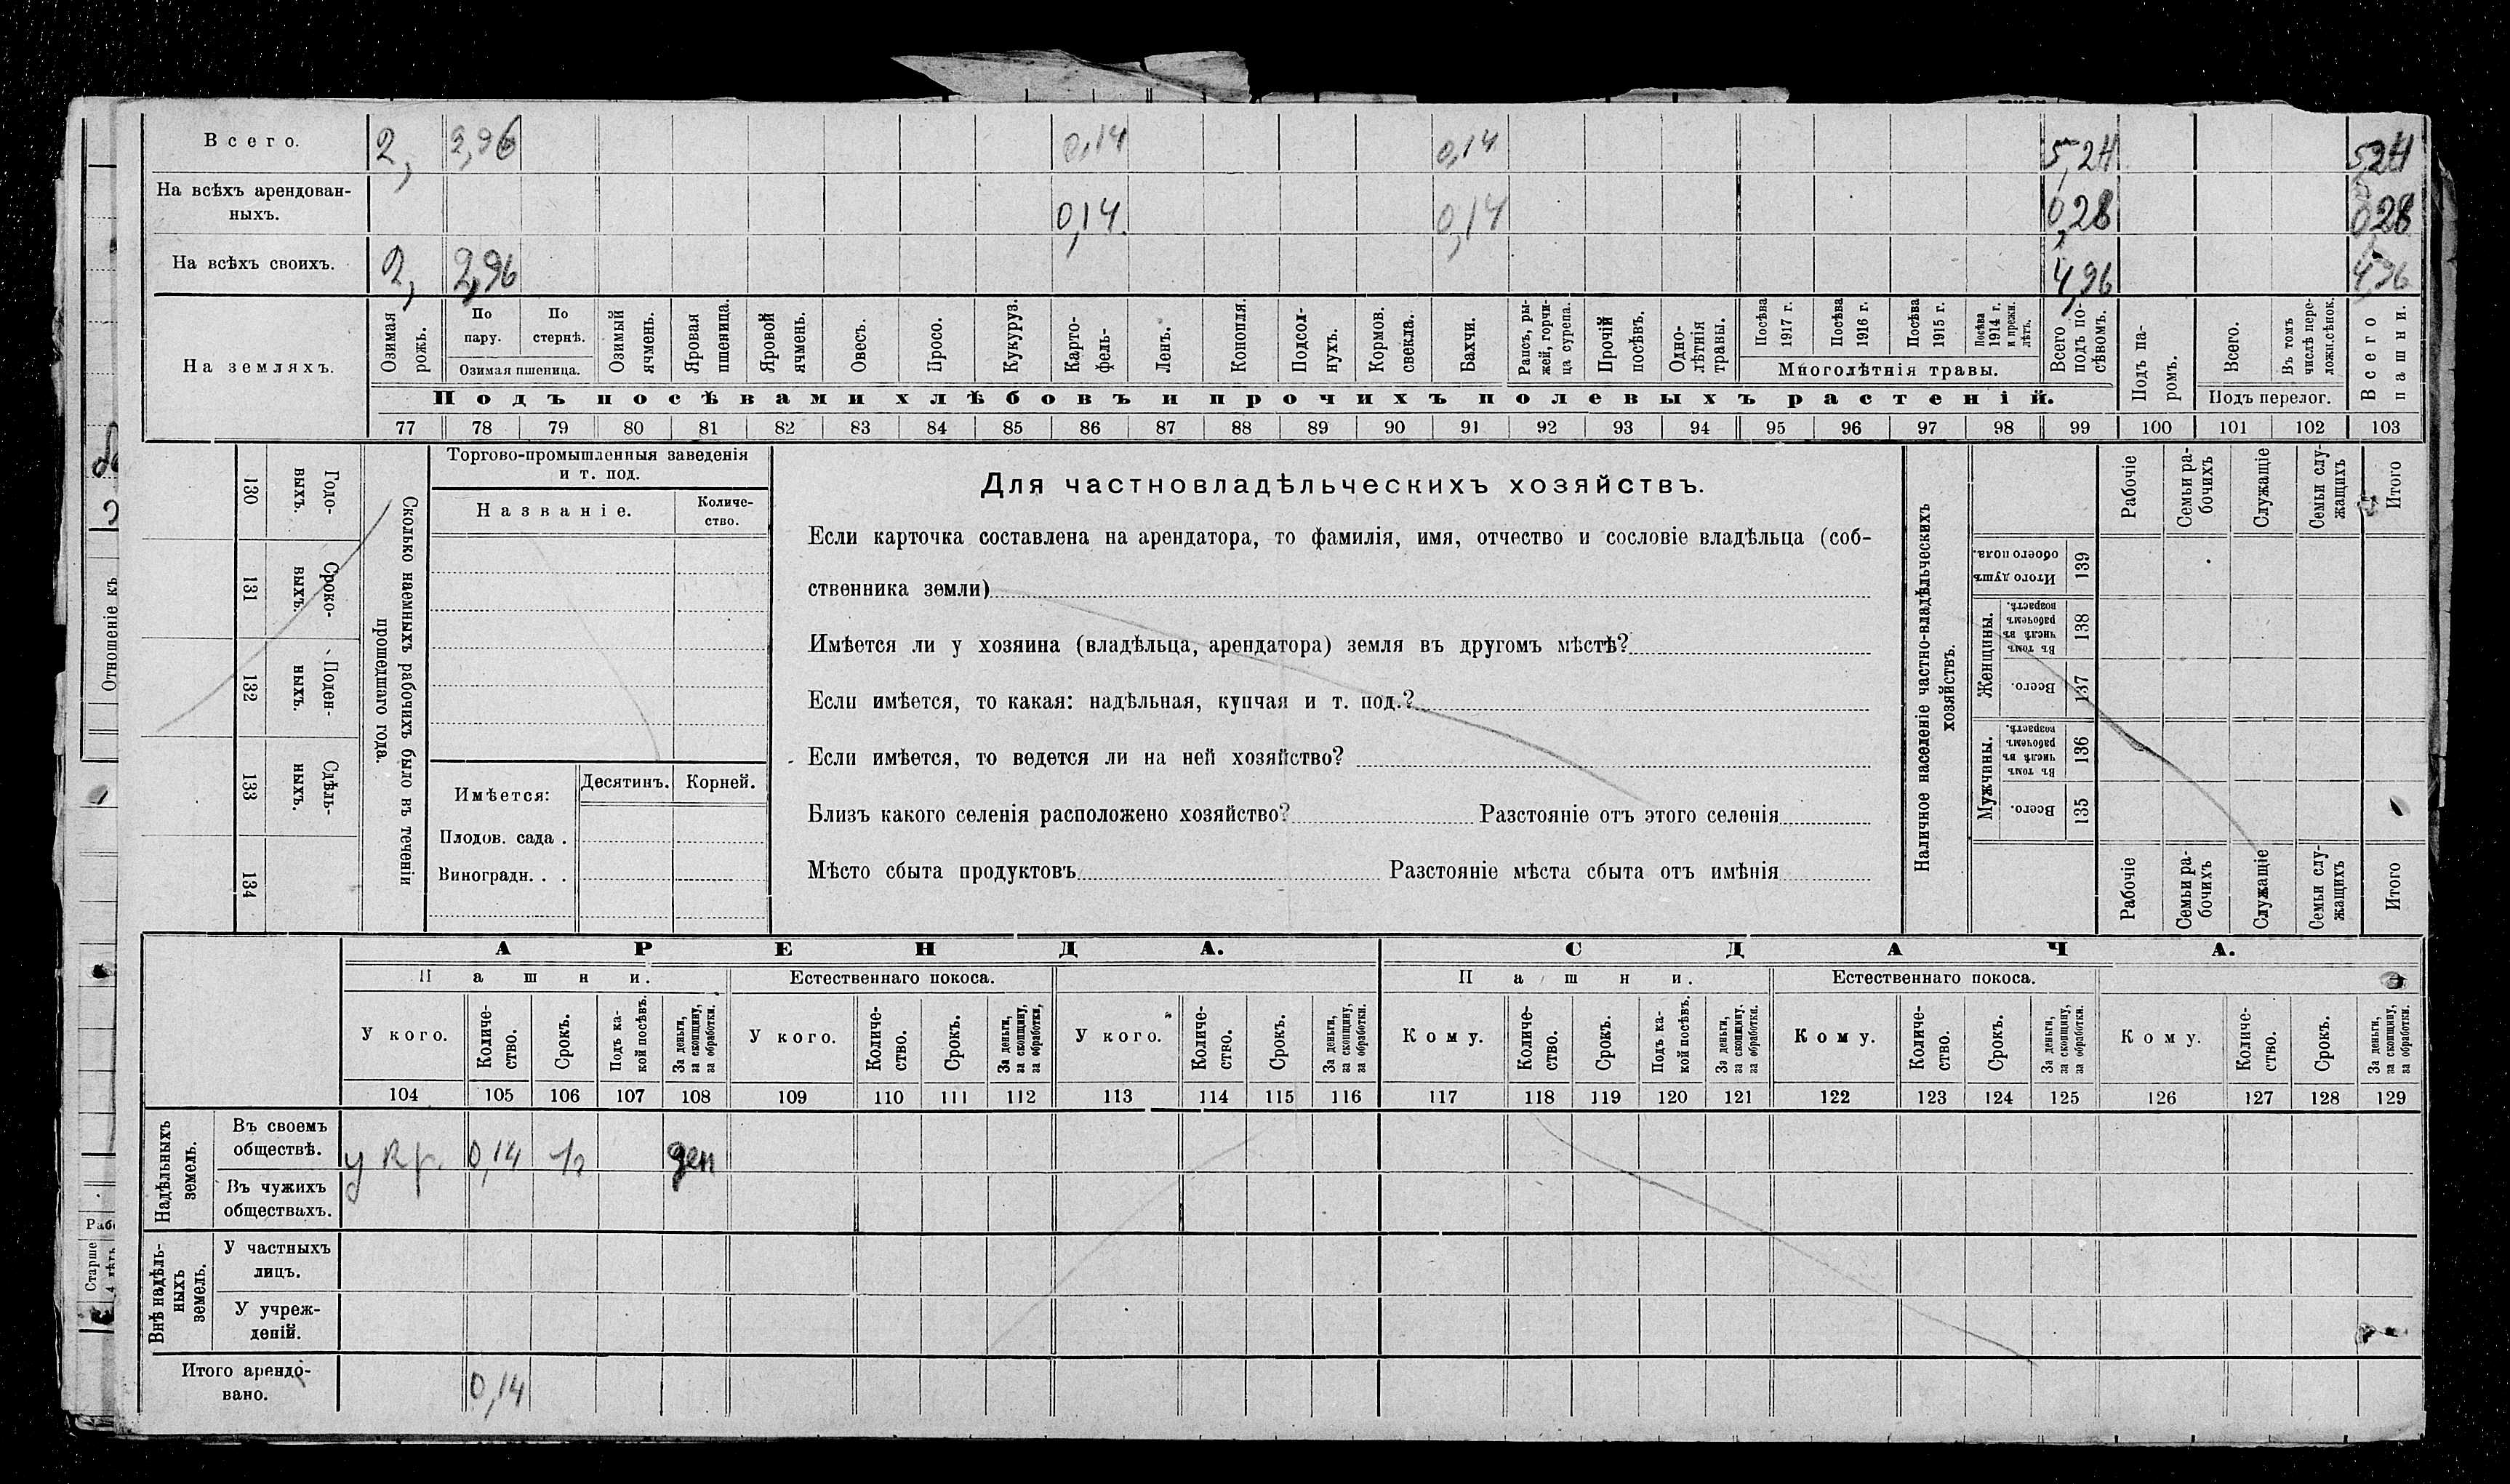 Всего. 2, 2,96 0,14 0,14 5,24 5,24
На всѣхъ арендован-
ныхъ. 0,14 0,14 0,28 0,28
На всѣхъ своихъ. 2, 2,96 4,96 4,96
На земляхъ.
Озимая рожь.
По пару.
По стернѣ.
Озимая пшеница.
Озимый ячмень.
Яровая пшеница.
Яровой ячмень.
Овесъ.
Просо.
Кукуруз.
Карто-
фель-
Ленъ.
Конопля.
Подсол-
нухъ.
Кормов.
свекла.
Бахчи.
Рапсъ, ры-
жей, горчи-
ца сурепа.
Прочій
посѣвъ.
Одно-
лѣтнія
травы.
Посѣва
1917 г.
Посѣва
1916 г.
Посѣва
1915 г.
Посѣва
1914 г.
и прежн.
лѣтъ.
Многолѣтнія травы.
Всего
подъ по-
сѣвомъ.
Подъ па-
ромъ.
Всего.
Въ томъ
числѣ пере-
ложн.сѣнок.
Подъ перелог.
Всего
пашни.
Подъ посѣвами хлѣбовъ и прочихъ полевыхъ растеній.
77 78 79 80 81 82 83 84 85 86 87 88 89 90 91 92 93 94 95 96 97 98 99 100 101 102 103
130 131 132 133 134
Годо-
выхъ.
Сроко-
выхъ.
Поден-
ныхъ.
Сдѣль-
ныхъ.
Сколько наемныхъ рабочихъ было въ теченіи
прошедшаго года.
Торгово-промышленныя заведенія
и т. под.
Названіе.
Количе-
ство.
Имѣется:
Десятинъ. Корней.
Плодов. сада .
Виноградн. . .
Для частновладѣльческихъ хозяйствъ.
Если карточка составлена на арендатора, то фамилія, имя, отчество и сословіе владѣльца (соб-
ственника земли)
Имѣется ли у хозяина (владѣльца, арендатора) земля въ другомъ мѣстѣ?
Если имѣется, то какая: надѣльная, купчая и т. под.?
Если имѣется, то ведется ли на ней хозяйство?
Близъ какого селенія расположено хозяйство? Разстояніе отъ этого селенія
Мѣсто сбыта продуктовъ Разстояніе мѣста сбыта отъ имѣнія
Наличное населеніе частно-владѣльческихъ
хозяйствъ.
Рабочіе
Семьи ра-
бочихъ
Служащіе
Семьи слу-
жащихъ
Итого
Итого душъ
обоего пола.
139
Женщины.
Въ томъ
числѣ въ
рабочемъ
возрастѣ.
138
Всего.
137
Мужчины.
Въ томъ
числѣ въ
рабочемъ
возрастѣ.
136
Всего.
135
Рабочіе
Семьи ра-
бочихъ
Служащіе
Семьи слу-
жащихъ
Итого
АРЕНДА. СДАЧА.
Пашни. Естественнаго покоса. Пашни. Естественнаго покоса.
У кого.
Количе-
ство.
Срокъ.
Подъ ка-
кой посѣвъ.
За деньги,
за скопщину,
за обработки.
У кого.
Количе-
ство.
Срокъ.
За деньги,
за скопщину,
за обработки,
У кого.
Количе-
ство.
Срокъ.
За деньги,
за скопщину,
за обработки.
Кому.
Количе-
ство.
Срокъ.
Подъ ка-
кой посѣвъ.
За деньги,
за скопщину.
за обработки.
Кому.
Количе-
ство.
Срокъ.
За деньги,
за скопщину,
за обработки.
Кому.
Количе-
ство.
Срокъ.
За деньги,
за скопщину,
за обработки.
104 105 106 107 108 109 110 111 112 113 114 115 116 117 118 119 120 121 122 123 124 125 126 127 128 129
Надѣльныхъ
земель.
Въ своемъ
обществѣ. у кр. 0,14 ден
Въ чужихъ
обществахъ.
Внѣ надѣль-
ныхъ
земель.
У частныхъ
лицъ.
У учреж-
деній.
Итого арендо-
вано. 0,14
Отношеніе къ
Старше